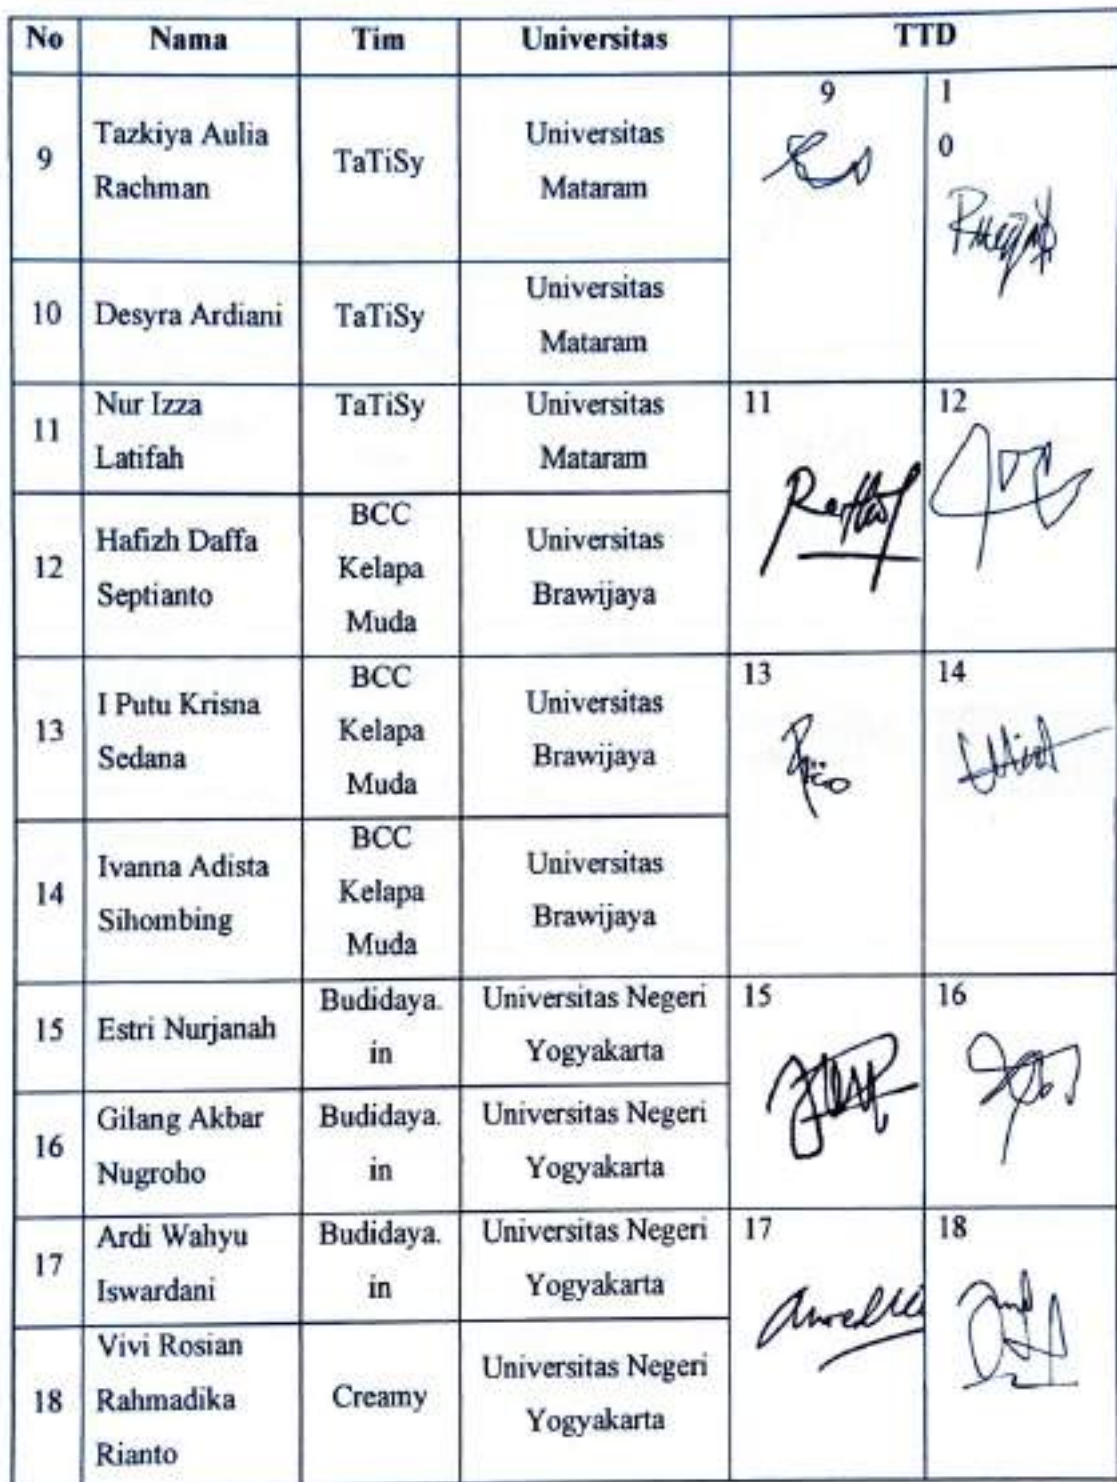 No Nama Tim Universitas TTD
9 Tazkiya Aulia Rachman TaTiSy Universitas Mataram 9 1 0
10 Desyra Ardiani TaTiSy Universitas Mataram
11 Nur Izza Latifah TaTiSy Universitas Mataram 11 12
12 Hafizh Daffa Septianto BCC Kelapa Muda Universitas Brawijaya
13 I Putu Krisna Sedana BCC Kelapa Muda Universitas Brawijaya 13 14
14 Ivanna Adista Sihombing BCC Kelapa Muda Universitas Brawijaya
15 Estri Nurjanah Budidaya. in Universitas Negeri Yogyakarta 15 16
16 Gilang Akbar Nugroho Budidaya. in Universitas Negeri Yogyakarta
17 Ardi Wahyu Iswardani Budidaya. in Universitas Negeri Yogyakarta 17 18
18 Vivi Rosian Rahmadika Rianto Creamy Universitas Negeri Yogyakarta